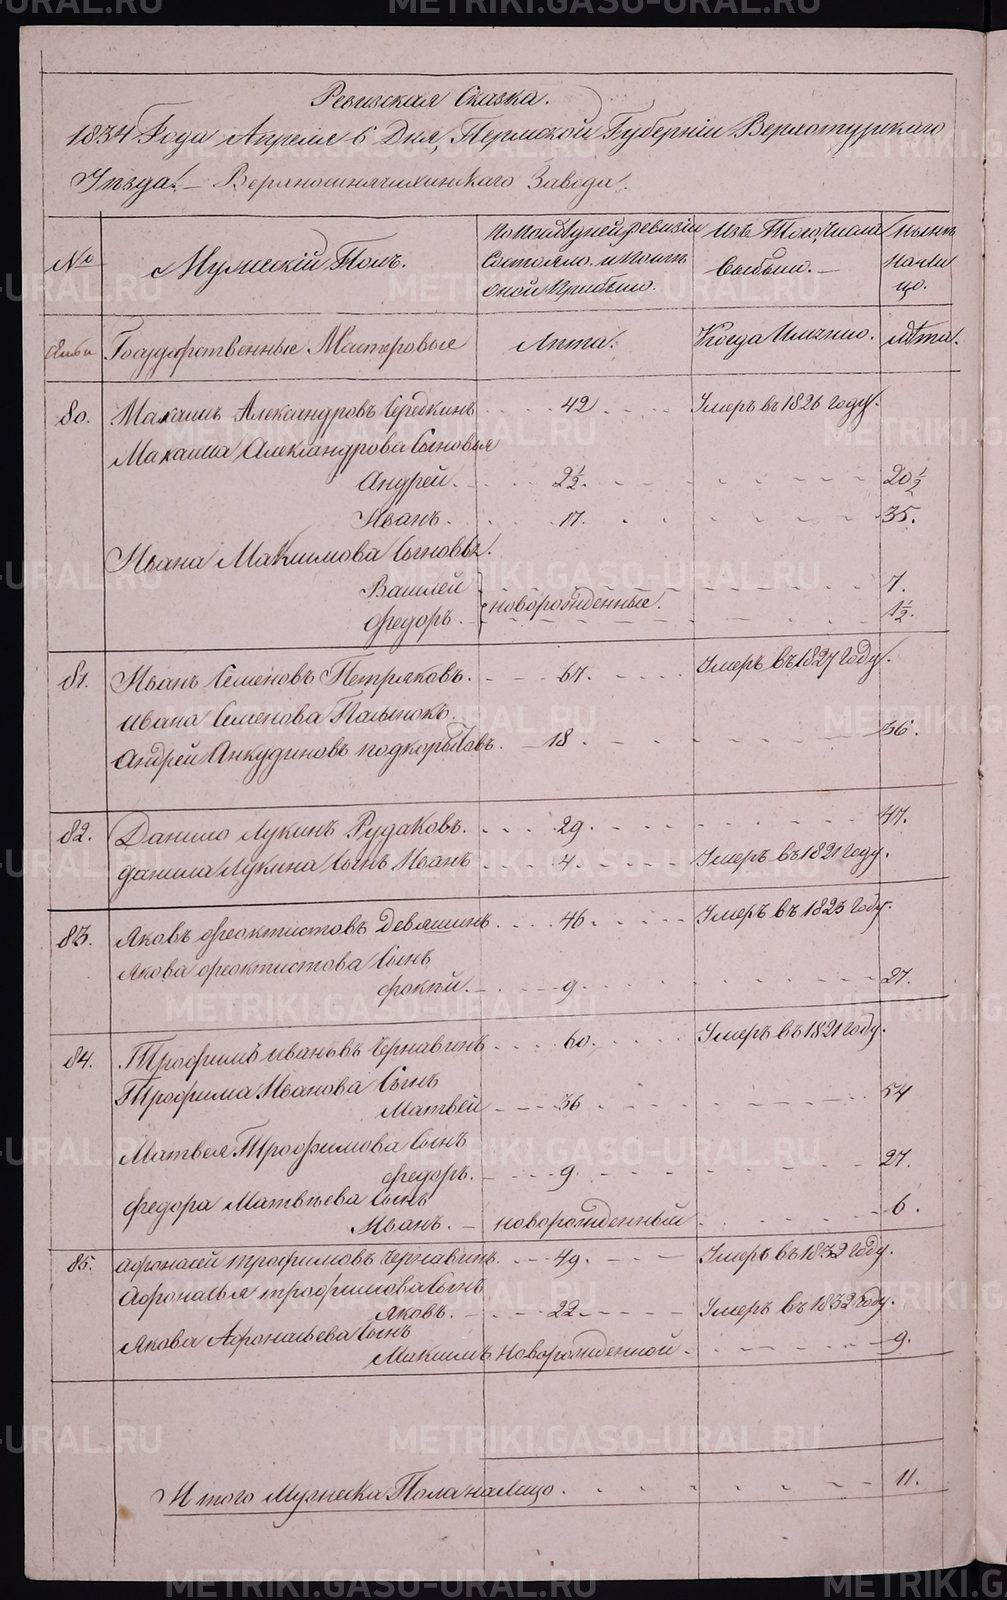 Ревизская Сказка.
1834 Года Апреля 6 Дня, Пермской Губерніи Верхотурскаго
Уѣзда. Завода.
№ Мужескій Полъ. По последней ревизіи Состояло и послѣ оной Прибыло. Изъ Того Числа Выбыли. Нынѣ налицо.
Государственные Мастеровые Лѣта. Когда Имянно. лѣта.
80. Максимъ Александровъ Середкинъ 42 Умеръ въ 1826 году.
Максима Александрова Сыновья
Андрей. 2½. 20½
Иванъ. 17. 35.
Ивана Максимова Сыновья.
Василей 7.
Федоръ. новорожденные. 1½.
81. Иванъ Семеновъ Петряковъ. 67. Умеръ въ 1827 году.
ивана Семенова
Андрей Анкудиновъ подкорытовъ. 18 36.
82. Данило Лукинъ Рудаковъ. 29. 47.
данила Лукина Сынъ Иванъ 4. Умеръ въ 1821 году.
83. Яковъ феоктистовъ Девяшинъ 46. Умеръ въ 1823 году.
Якова феоктистова Сынъ
фокѣй. 9. 27.
84. Трофимъ ивановъ Чернавинъ 60. Умеръ въ 1821 году.
Трофима Иванова Сынъ
Матвей 36 54
Матвея Трофимова Сынъ
федоръ. 9. 27.
федора Матвѣева Сынъ
Иванъ. новорожденный 6.
85. афонасей трофимовъ Чернавинъ. 49. Умеръ въ 1832 году.
Афонасья трофимова Сынъ
Яковъ. 22. Умеръ въ 1832 году.
Якова Афонасьева Сынъ
Максимъ Новорожденной. 9.
Итого Мужеска Пола налицо. 11.
METRIKI.GASO-URAL.RU